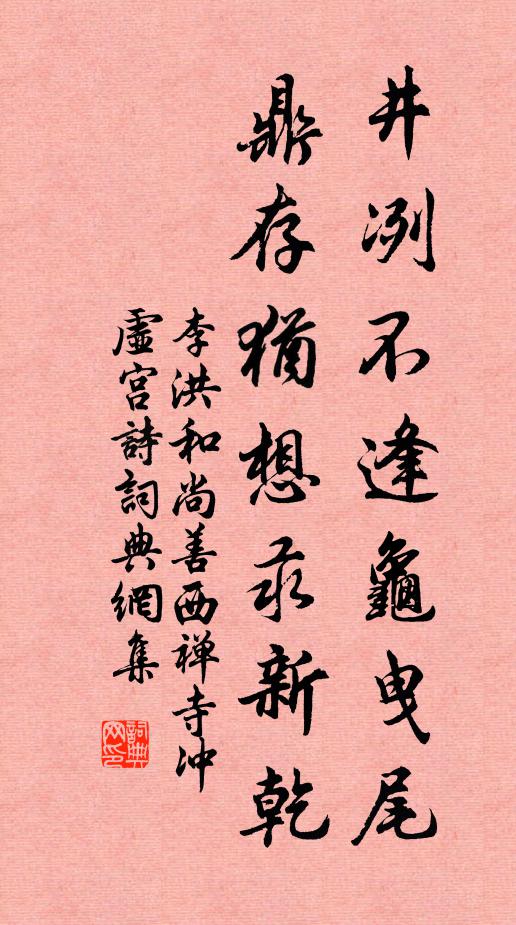 井冽不逢龜曳尾
鼎存猶想汞新乾
李洪和尚善西禅寺冲
虛宮詩詞典網集
詞典
网印